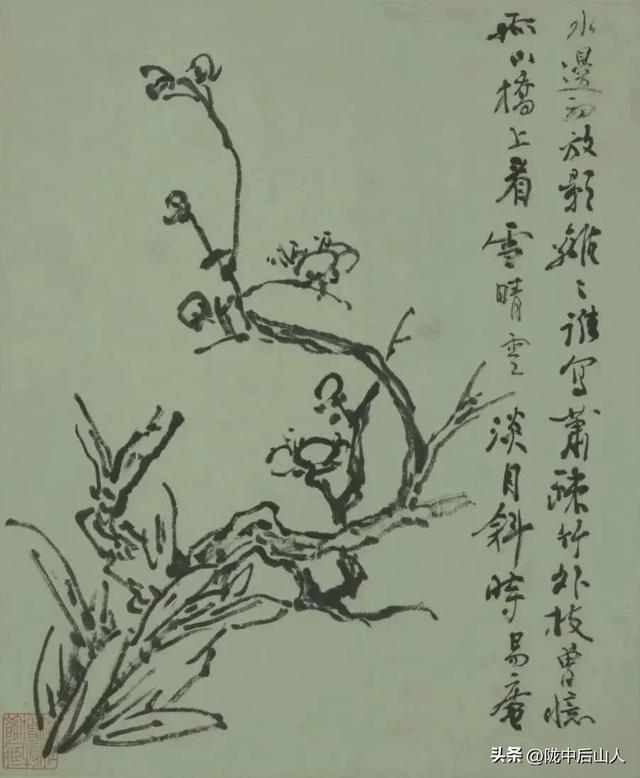 水邊初放影離〻誰寫蕭疎竹外枝曾憶
孤山橋上看雪晴雲淡月斜時易庵
头条 @陇中后山人